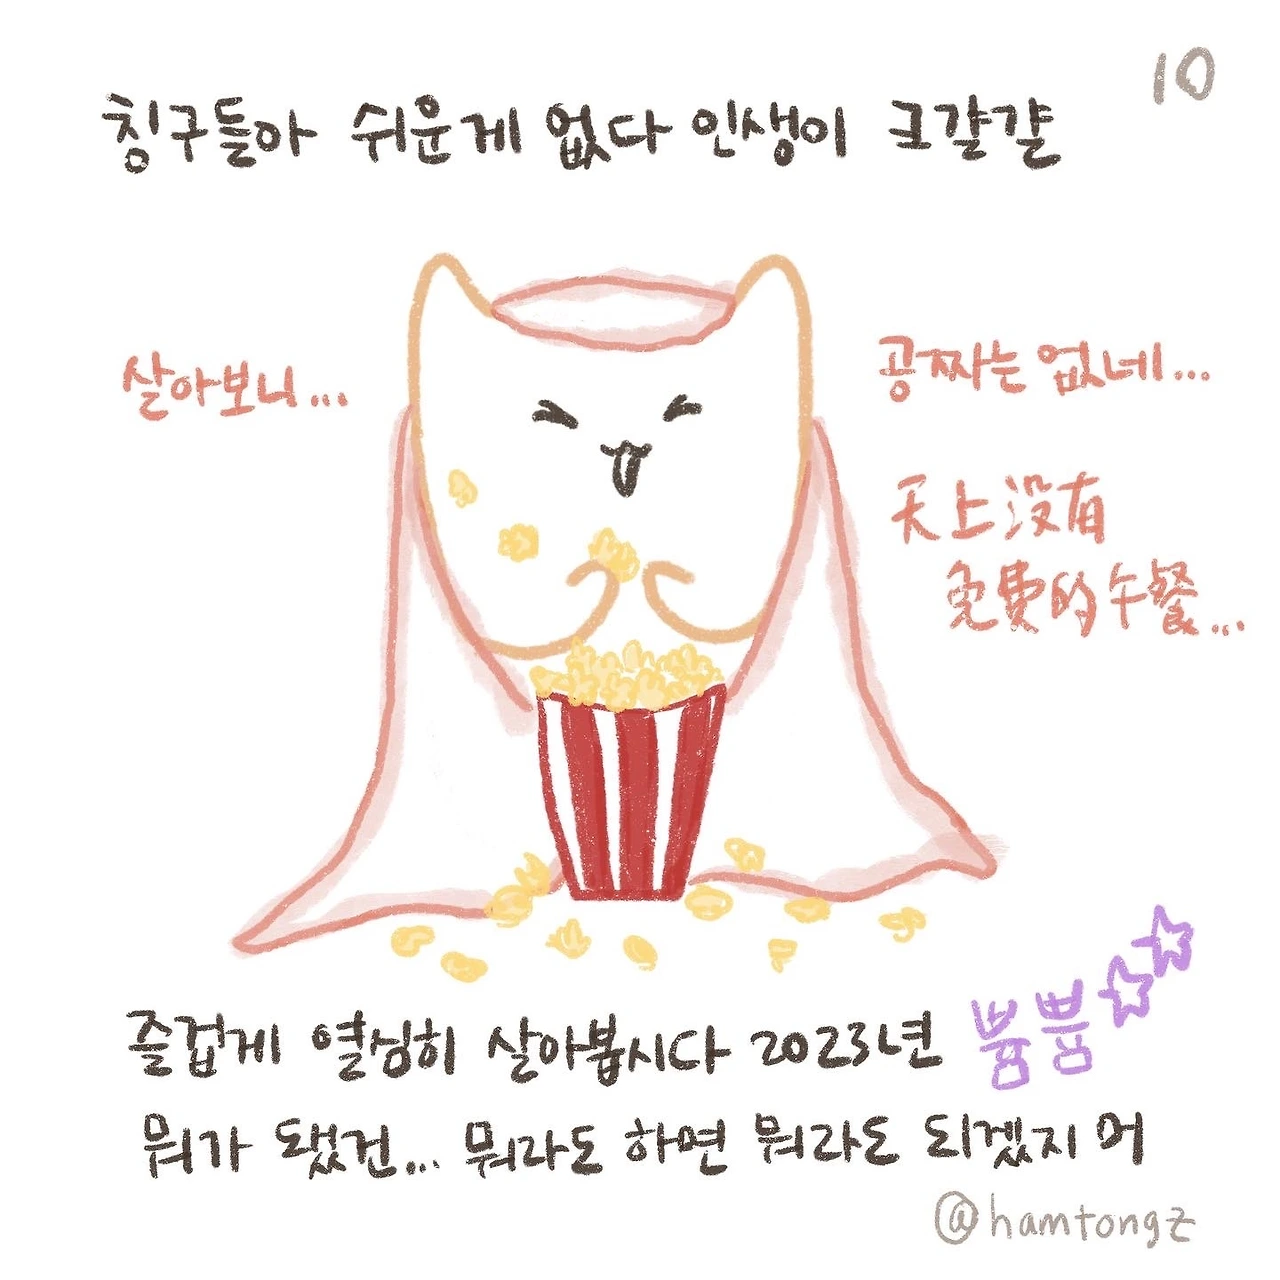 10
칭구들아 쉬운게 없다 인생이 크걀걀
살아보니...
공짜는 없네...
天上没有
免费的午餐...
즐겁게 열심히 살아봅시다 2023년 뿜뿜
뭐가 됐건... 뭐라도 하면 뭐라도 되겠지 머
@hamtongz